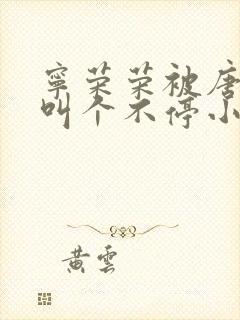 寧荣荣被唐
叫个不停小
黄雲